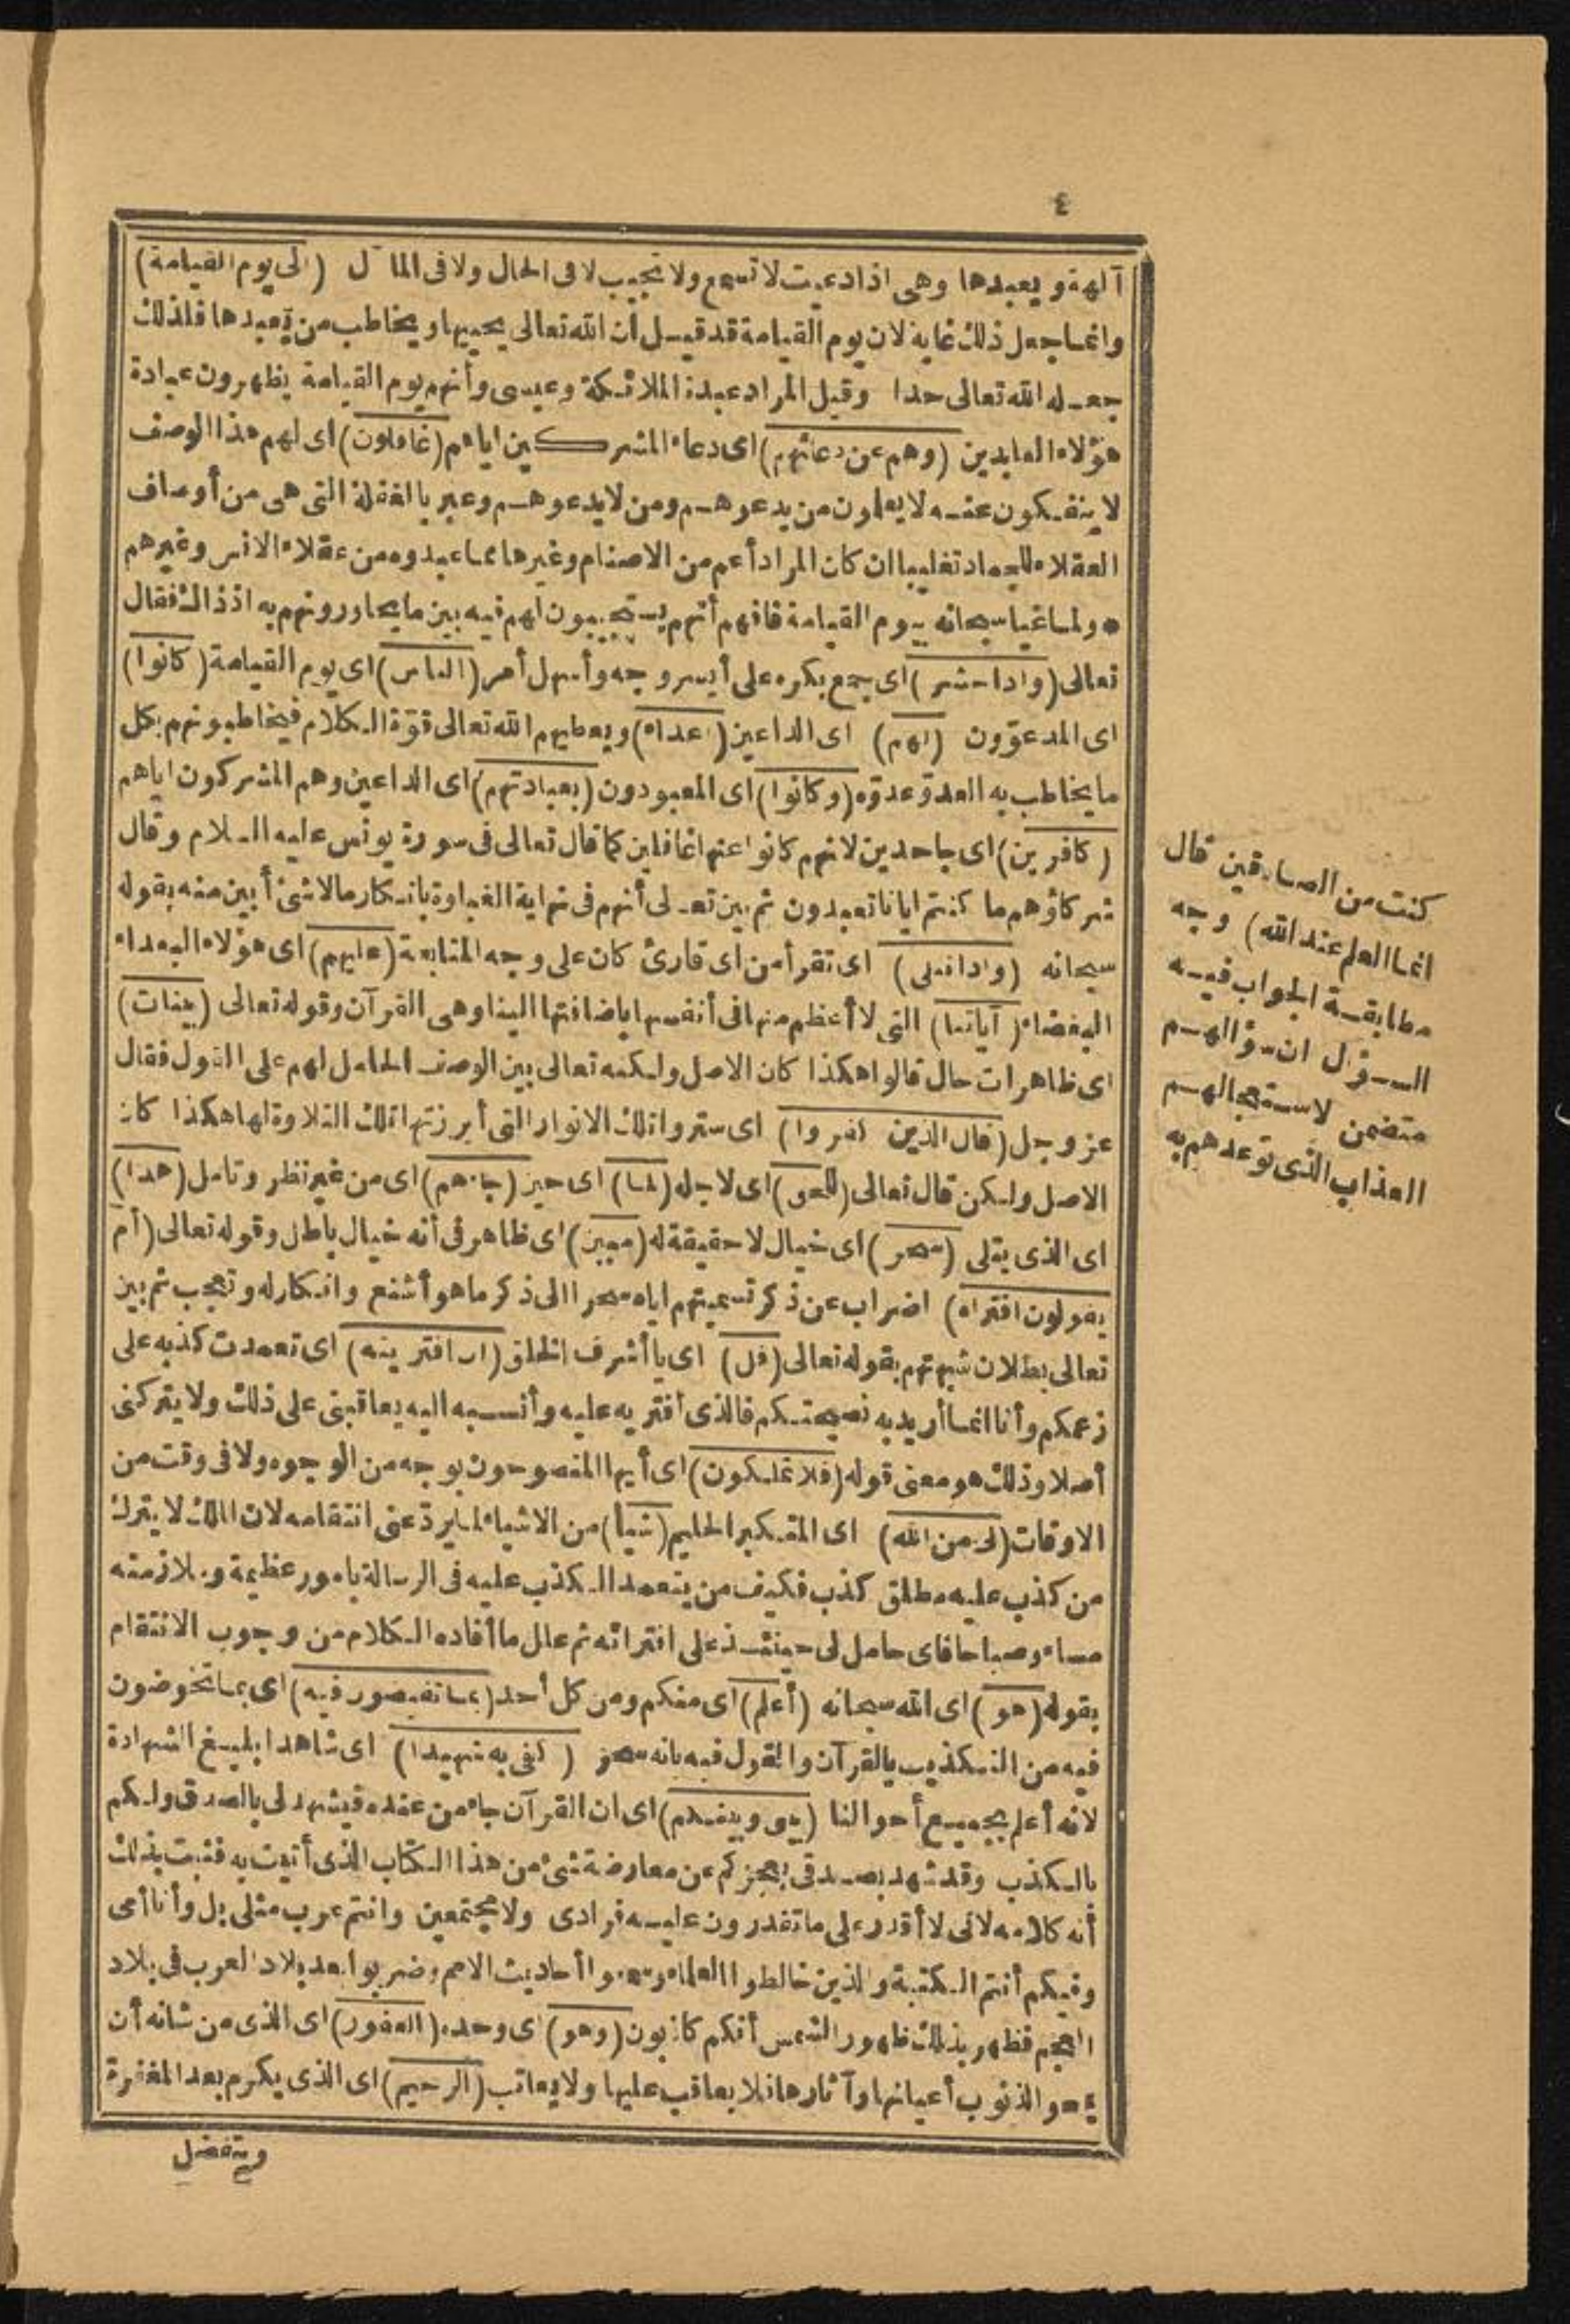 ٤
آلهة ويعبدها وهى اذا دعيت لا تسمع ولا تجيب لا فى الحال ولا فى المآل (الى يوم القيامة)
وانما جعل ذلك غاية لان يوم القيامة قد قيل ان الله تعالى يحييها ويخاطب من يعبدها فلذلك
جعله الله تعالى حدا وقيل المراد عبدة الملائكة وعيسى وأنهم يوم القيامة يظهرون عبادة
هؤلاء العابدين (وهم عن دعائهم) اى دعاء المشركين اياهم (غافلون) اى لهم هذا الوصف
لا ينفكون عنه لا يعلمون من يدعوهم ومن لا يدعوهم وعبر بالغفلة التى هى من أوصاف
العقلاء للجماد تغليبا ان كان المراد أعم من الاصنام وغيرها مما عبدوه من عقلاء الانس وغيرهم
* ولما غيا سبحانه بيوم القيامة فافهم أنهم يستجيبون لهم فيه بين ما يحاورونهم به اذ ذاك فقال
تعالى (واذا حشر) اى جمع بكره على أيسر وجه وأسهل أمر (الناس) اى يوم القيامة (كانوا)
اى المدعوّون (لهم) اى الداعين (أعداء) ويعطيهم الله تعالى قوّة الكلام فيخاطبونهم بكل
ما يخاطب به العدوّ عدوّه (وكانوا) اى المعبودون (بعبادتهم) اى الداعين وهم المشركون اياهم
(كافرين) اى جاحدين لانهم كانوا عنها غافلين كما قال تعالى فى سورة يونس عليه السلام وقال
شركاؤهم ما كنتم ايانا تعبدون ثم بين تعالى أنهم فى نهاية الغباوة بانكار مالا شئ أبين منه بقوله
سبحانه (واذا تتلى) اى تقرأ من اى قارئ كان على وجه المتابعة (عليهم) اى هؤلاء البعداء
البغضاء (آياتنا) التى لا أعظم منها فى أنفسها باضافتها الينا وهى القرآن وقوله تعالى (بينات)
اى ظاهرات حال قالوا هكذا كان الاصل ولكنه تعالى بين الوصف الحامل لهم على القول فقال
عز وجل (قال الذين كفروا) اى ستروا تلك الانوار التى أبرزتها تلك التلاوة لها هكذا كان
الاصل ولكن قال تعالى (للحق) اى لاجله (لما) اى حين (جاءهم) اى من غير نظر وتأمل (هذا)
اى الذى يتلى (سحر) اى خيال لا حقيقة له (مبين) اى ظاهر فى أنه خيال باطل وقوله تعالى (أم
يقولون افتراه) اضراب عن ذكر تسميتهم اياه سحرا الى ذكر ما هو أشنع وانكار له وتعجب ثم بين
تعالى بطلان شبهتهم بقوله تعالى (قل) اى يا أشرف الخلق (ان افتريته) اى تعمدت كذبه على
زعمكم وأنا انما أريد به نصيحتكم فالذى أفتريه عليه وأنسبه اليه يعاقبنى على ذلك ولا يتركنى
أصلا وذلك هو معنى قوله (فلا تملكون) اى أيها المنصوحون بوجه من الوجوه ولا فى وقت من
الاوقات (لى من الله) اى المتكبر الحليم (شيأ) من الاشياء لما يردّ عنى انتقامه لان الملك لا يترك
من كذب عليه مطلق كذب فكيف من يتعمد الكذب عليه فى الرسالة بامور عظيمة وملازمته
مساء وصباحا فاى حامل لى حينئذ على افترائه ثم علل ما أفاده الكلام من وجوب الانتقام
بقوله (هو) اى الله سبحانه (أعلم) اى منكم ومن كل أحد (بما تفيضون فيه) اى بما تخوضون
فيه من التكذيب بالقرآن والقول فيه بانه سحر (كفى به شهيدا) اى شاهدا بليغ الشهادة
لانه أعلم بجميع أحوالنا (بينى وبينكم) اى ان القرآن جاء من عنده فيشهد لى بالصدق ولكم
بالكذب وقد شهد بصدقى بعجزكم عن معارضة شئ من هذا الكتاب الذى أتيت به فثبت بذلك
أنه كلامه لانى لا أقدر على ما تقدرون عليه فرادى ولا مجتمعين وانتم عرب مثلى بل وأنا أمى
وفيكم أنتم الكتبة والذين خالطوا العلماء وسمعوا أحاديث الامم وضربوا بعد بلاد العرب فى بلاد
العجم فظهر بذلك ظهور الشمس أنكم كاذبون (وهو) اى وحده (الغفور) اى الذى من شانه أن
يمحو الذنوب أعيانها وآثارها فلا يعاقب عليها ولا يعاتب (الرحيم) اى الذى يكرم بعد المغفرة
ويتفضل
كنت من الصادقين قال
انما العلم عند الله) وجه
مطابقة الجواب فيه
السؤال ان سؤالهم
متضمن لاستعجالهم
العذاب الذى توعدهم به